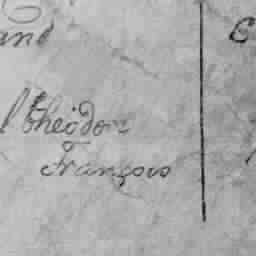 and
l theodore
François